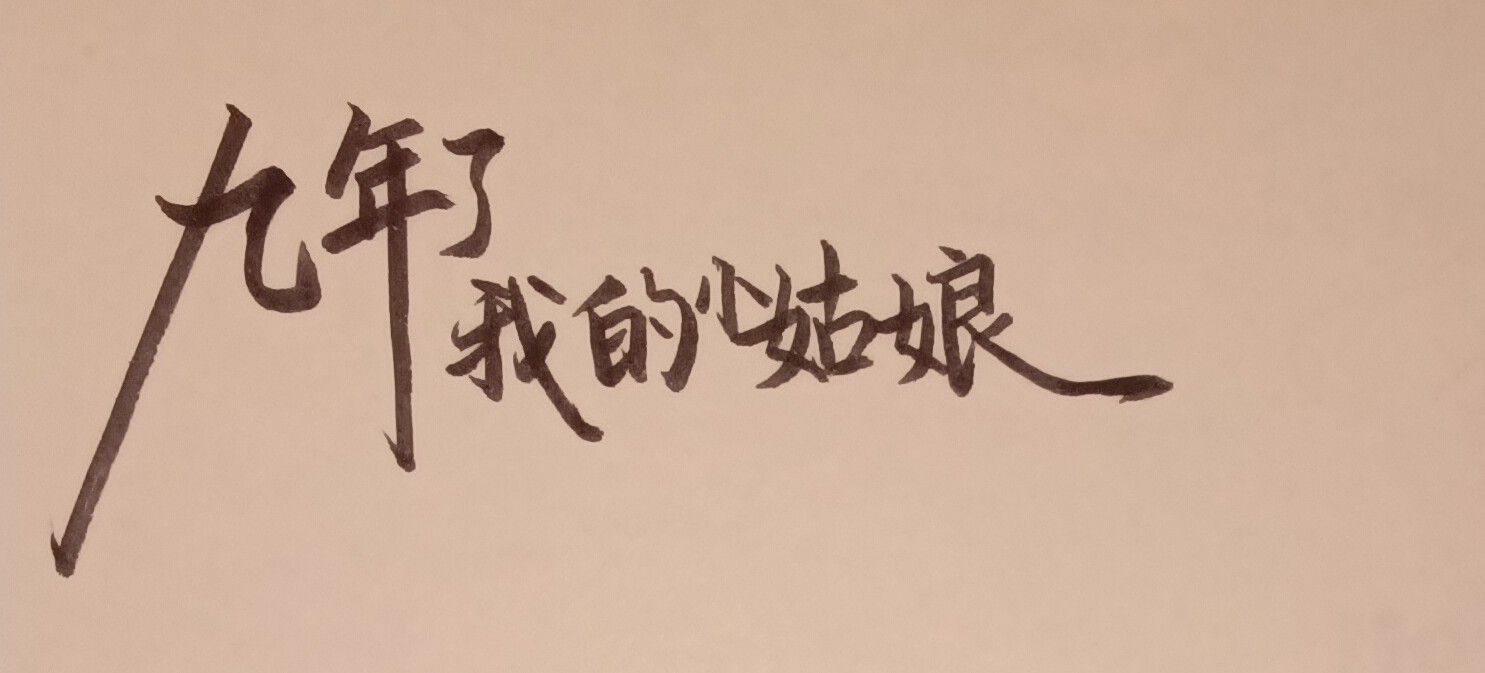 九年了
我的小姑娘